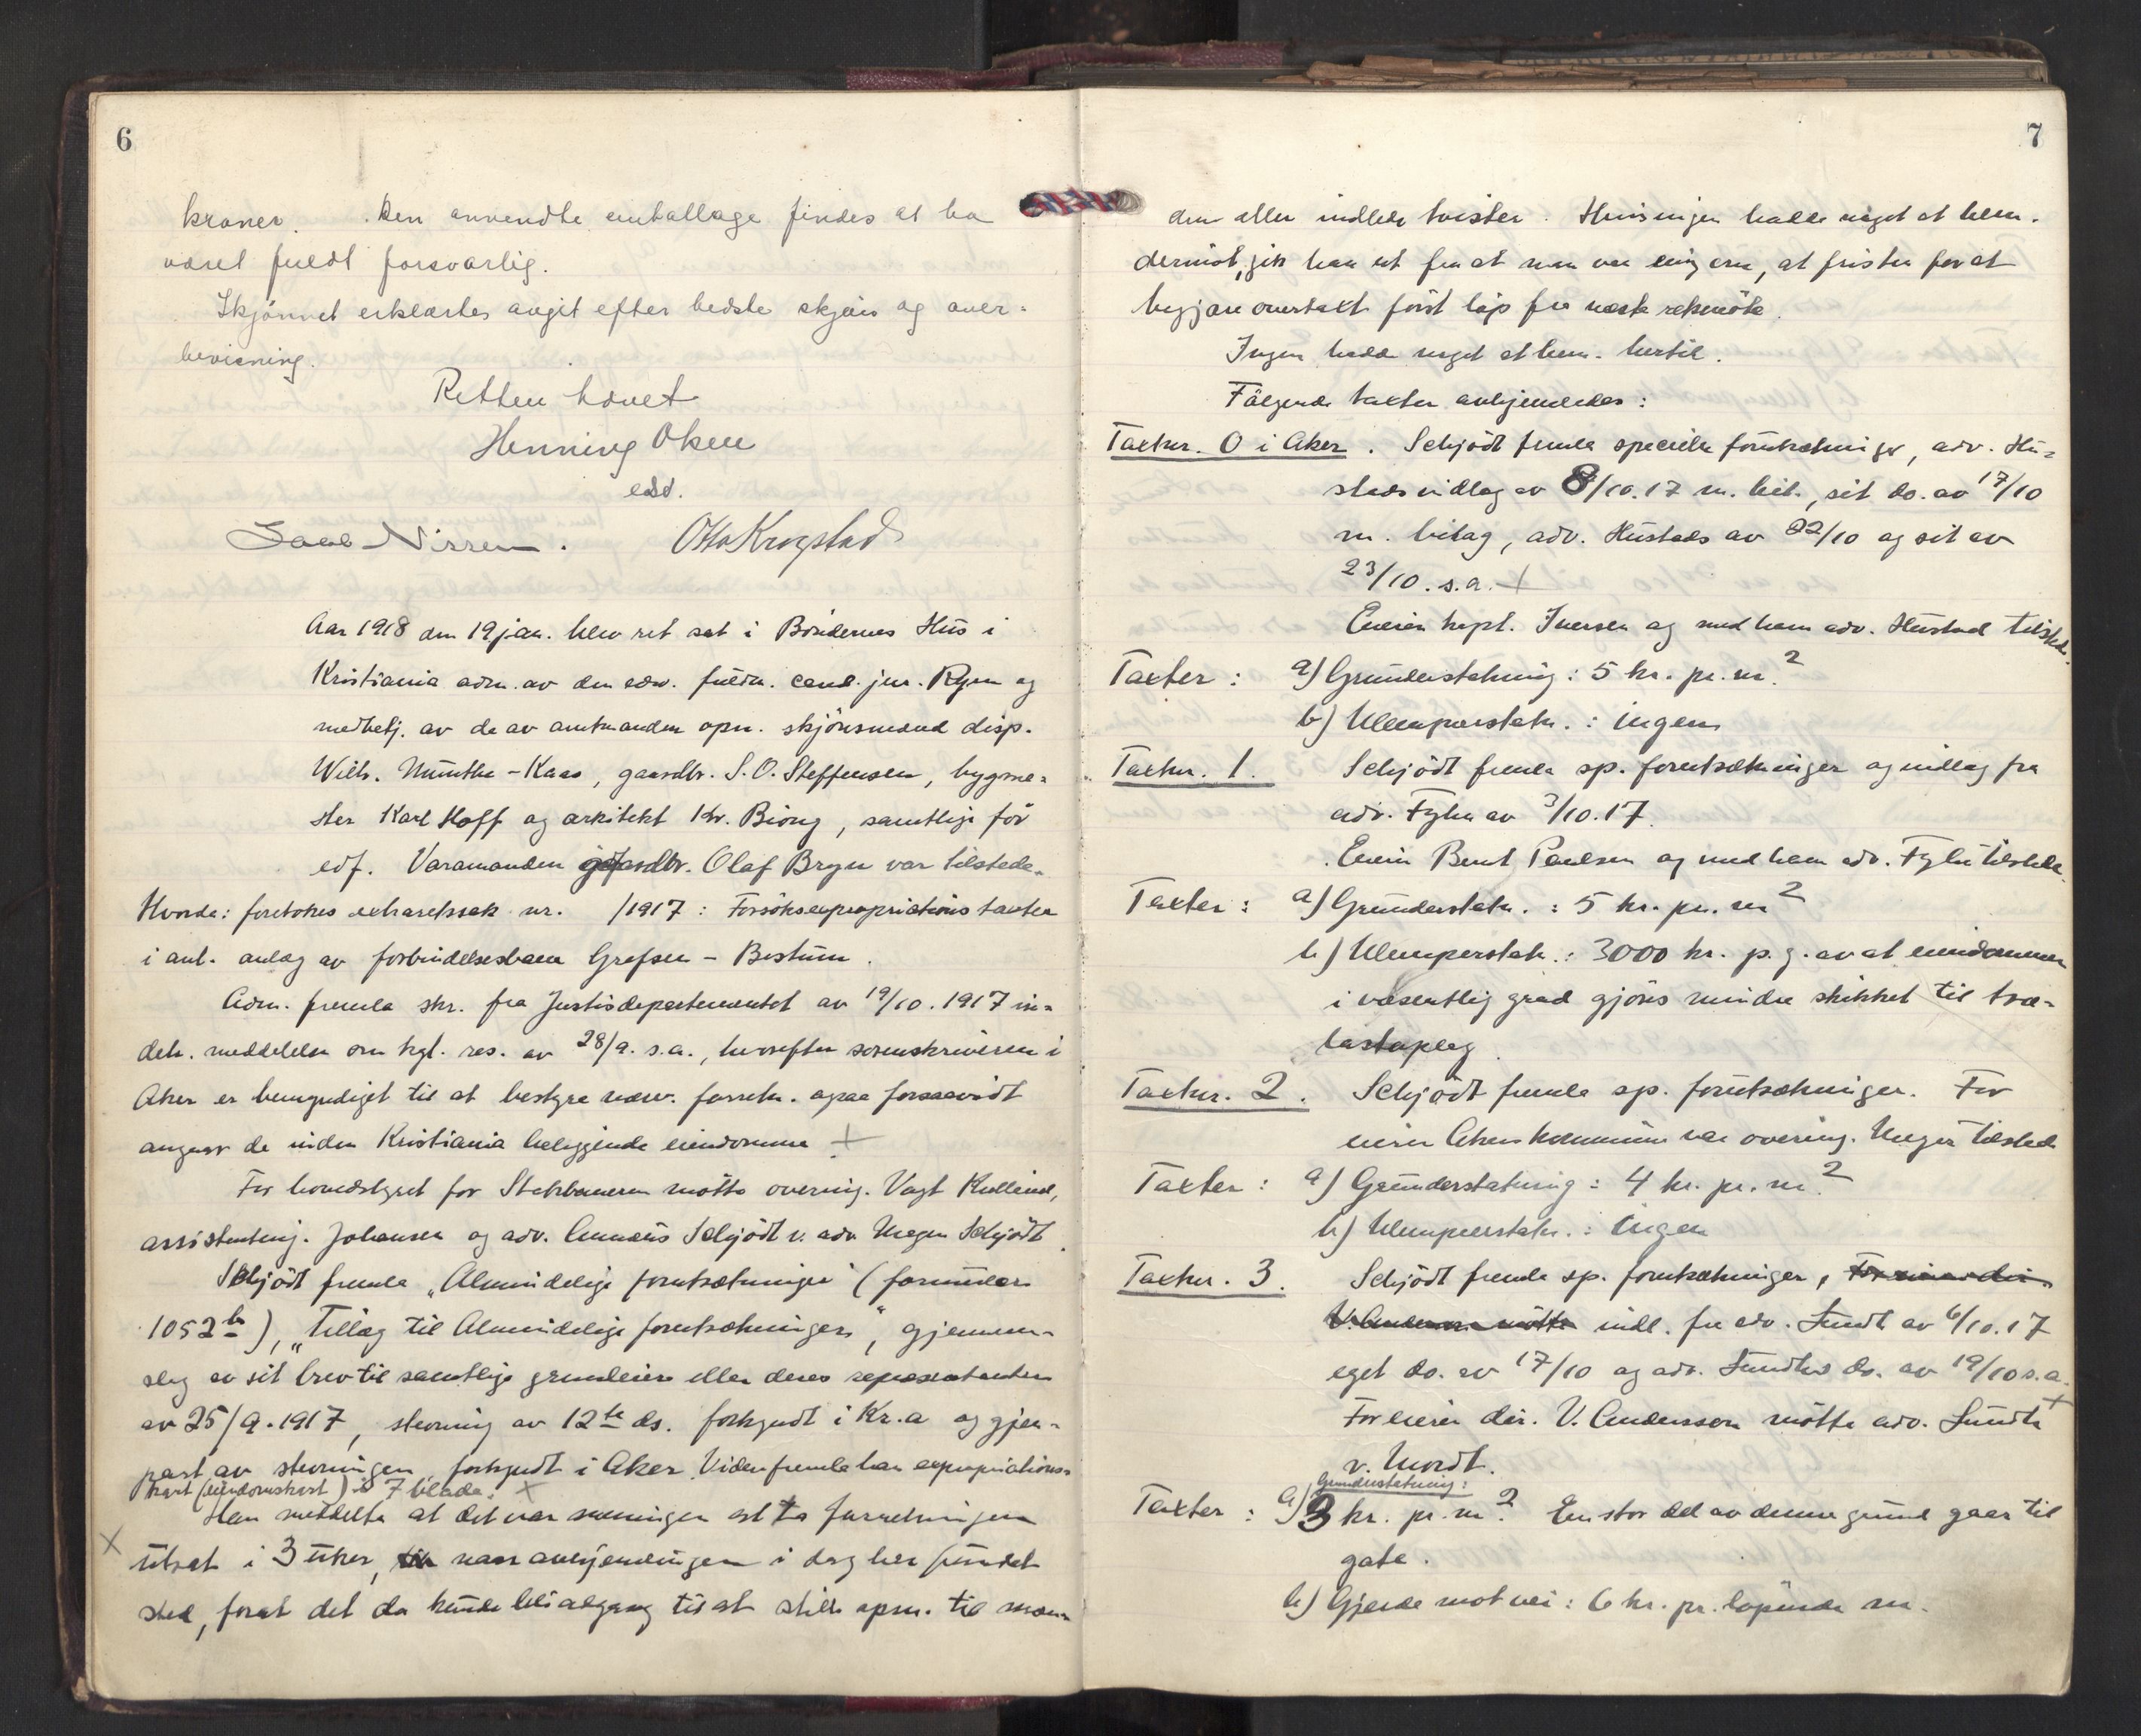 6
kroner. Den anvendte emballage findes at ha
været fuldt forsvarlig.
Skjønnet erklærtes avgit efter bedste skjøn og over-
bevisning.
Retten hævet
Henning Oken
edsv.
Nissen. Otto Krogstad
Aar 1918 den 19 jan. blev ret sat i Bøndernes Hus i
Kristiania adm. av den edsv. fuldm. cand. jur. Ryen og
medbetj. av de av amtmanden opn. skjønsmænd disp.
Wilh. Munthe-Kaas, gaardbr. S. O. Steffensen, bygme-
ster Karl Hoff og arkitekt Kr. Biong, samtlige før
edf. Varamanden gaardbr. Olaf Bryn var tilstede.
Hvorda: foretokes extraretssak nr. /1917: Forsøksexpropriationstaxter
i anl. anlæg av forbindelsesbanen Grefsen - Bestum.
Adm. fremla skr. fra Justisdepartementet av 19/10. 1917 in-
deh. meddelelse om kgl. res. av 28/9. s.a., hvorefter sorenskriveren i
Aker er bemyndiget til at bestyre nærv. forretn. ogsaa forsaavidt
angaar de inden Kristiania beliggende eiendomme +
For hovedstyret for Statsbanerne møtte overing. Vogt
assistenting. Johansen og adv. Annæus Schjødt v. adv. Schjødt.
Schjødt fremla „Almindelige forutsætninger" (formular
1052 b), „Tillæg til Almindelige forutsætninger", gjennem-
slag av sit brev til samtlige grundeiere eller deres repæsentanter
av 25/9. 1917, stevning av 12te ds. forkyndt i Kr.a og gjen-
part av stevningen forkyndt i Aker. Viden fremla han expropriations-
kart (eiendomskart) i 7 blade. +
Han meddelte at det var meningen at ta forretningen
X utsat i 3 uker, naar avhjemlingen i dag har fundet
sted, forat det da kunde bli adgang til at stille spm. til mæn-
7
den eller indlede tvister. Hvis ingen hadde noget at bem.
derimot, gik han ut fra at man var enig om, at fristen for at
begjære overtakst først løp fra næste retsmøte.
Ingen hadde noget at bem. hertil.
Følgende taxter avhjemledes:
Taxtnr. 0 i Aker. Schjødt fremla specielle forutsætninger, adv. Hu-
stads indlæg av 8/10. 17 m. bil., sit do. av 17/10
m. bilag, adv. Hustads av 22/10 og sit av
23/10. s.a. +
Eieren kapt. Iversen og med ham adv. Hustad tilstede.
Taxter: a) Grunderstatning: 5 kr. pr. m.2
b) Ulemperstatn.: ingen
Taxtnr. 1. Schjødt fremla sp. forutsætninger og indlæg fra
adv. Fyhn av 3/10. 17.
Eieren Bent Paulsen og med ham adv. Fyhn tilstede.
Taxter: a) Grunderstatn.: 5 kr. pr. m2
b) Ulemperstatn.: 3000 kr. p. g. av at eiendommen
i væsentlig grad gjøres mindre skikket til træ-
lastoplag.
Taxtnr. 2. Schjødt fremla sp. forutsætninger. For
eieren Akers kommune var overing. Unger tilstede
Taxter: a) Grunderstatning: 4 kr. pr. m.2
b) Ulemperstatn.: ingen
Taxtnr. 3. Schjødt fremla sp. forutsætninger, For eieren dir.
V. Andersson møtte indl. fra adv. Sundt av 6/10. 17
eget do. av 17/10 og adv. Sundts do. av 19/10 s.a. +
For eieren dir. V. Andersson møtte adv. Sundt
v. Mordt.
Grunderstatning:
Taxter: a) 3 kr. pr. m.2 En stor del av denne grund gaar til
gate.
b) Gjerde mot vei: 6 kr. pr. løpende m.